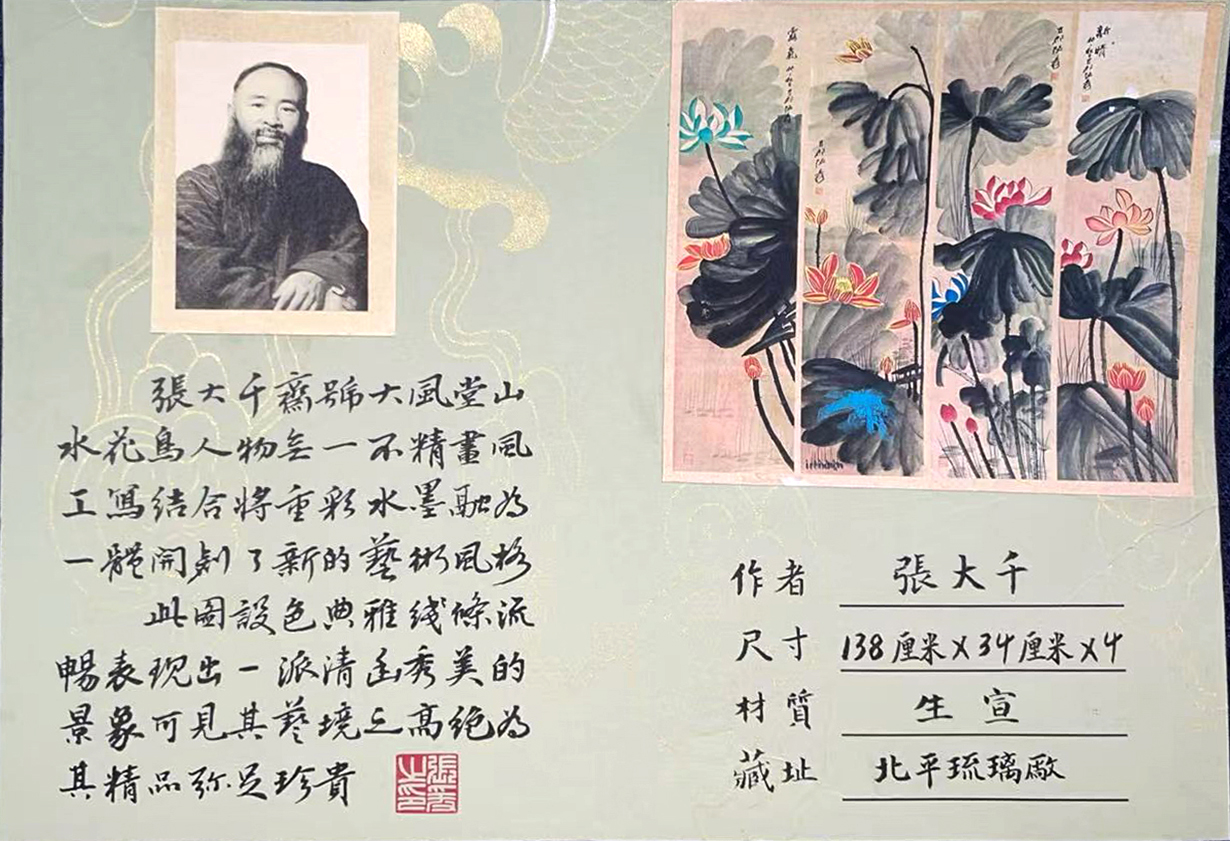 張大千齋號大風堂山
水花鳥人物無一不精畫風
工寫結合將重彩水墨融為
一體開創了新的藝術風格
此圖設色典雅线條流
暢表現出一派清幽秀美的
景象可見其藝境之高絕為
其精品弥足珍貴
作者 張大千
尺寸 138厘米X34厘米X4
材質 生宣
藏址 北平琉璃廠